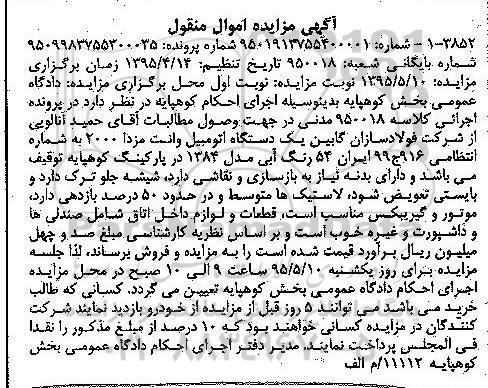 آگهی مزایده اموال منقول
۱-۳۸۵۲ - شماره: ۹۵۰۱۹۱۳۷۵۵۴۰۰۰۰۱ شماره پرونده: ۹۵۰۹۹۸۳۷۵۵۳۰۰۰۳۵
شماره بایگانی شعبه: ۹۵۰۰۱۸ تاریخ تنظیم: ۱۳۹۵/۴/۱۴ زمان برگزاری
مزایده: ۱۳۹۵/۵/۱۰ نوبت مزایده: نوبت اول محل برگزاری مزایده: دادگاه
عمومی بخش کوهپایه بدینوسیله اجرای احکام کوهپایه در نظر دارد در پرونده
اجرائی کلاسه ۹۵۰۰۱۸ مدنی در جهت وصول مطالبات آقای حمید آنالویی
از شرکت فولادسازان گابین یک دستگاه اتومبیل وانت مزدا ۲۰۰۰ به شماره
انتظامی ۹۱۶ج۹۹ ایران ۵۴ رنگ آبی مدل ۱۳۸۴ در پارکینگ کوهپایه توقیف
می باشد و دارای بدنه نیاز به بازسازی و نقاشی دارد، شیشه جلو ترک دارد و
بایستی تعویض شود، لاستیک ها متوسط و در حدود ۵۰ درصد بازدهی دارد،
موتور و گیربکس مناسب است، قطعات و لوازم داخل اتاق شامل صندلی ها
و داشبورت و غیره خوب است و بر اساس نظریه کارشناسی مبلغ صد و چهل
میلیون ریال برآورد قیمت شده است را به مزایده و فروش برساند، لذا جلسه
مزایده برای روز یکشنبه ۹۵/۵/۱۰ ساعت ۹ الی ۱۰ صبح در محل مزایده
اجرای احکام دادگاه عمومی بخش کوهپایه تعیین می گردد. کسانی که طالب
خرید می باشد می توانند ۵ روز قبل از مزایده از خودرو بازدید نمایند شرکت
کنندگان در مزایده کسانی خواهند بود که ۱۰ درصد از مبلغ مذکور را نقدا
فی المجلس پرداخت نمایند. مدیر دفتر اجرای احکام دادگاه عمومی بخش
کوهپایه ۱۱۱۱۲/م الف